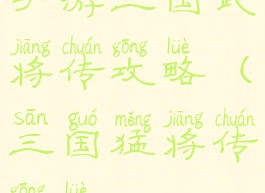 手游三国武
jiāng chuán gōng lüè
将传攻略（
sān guó měng jiāng chuán
三国猛将传
gōng lüè